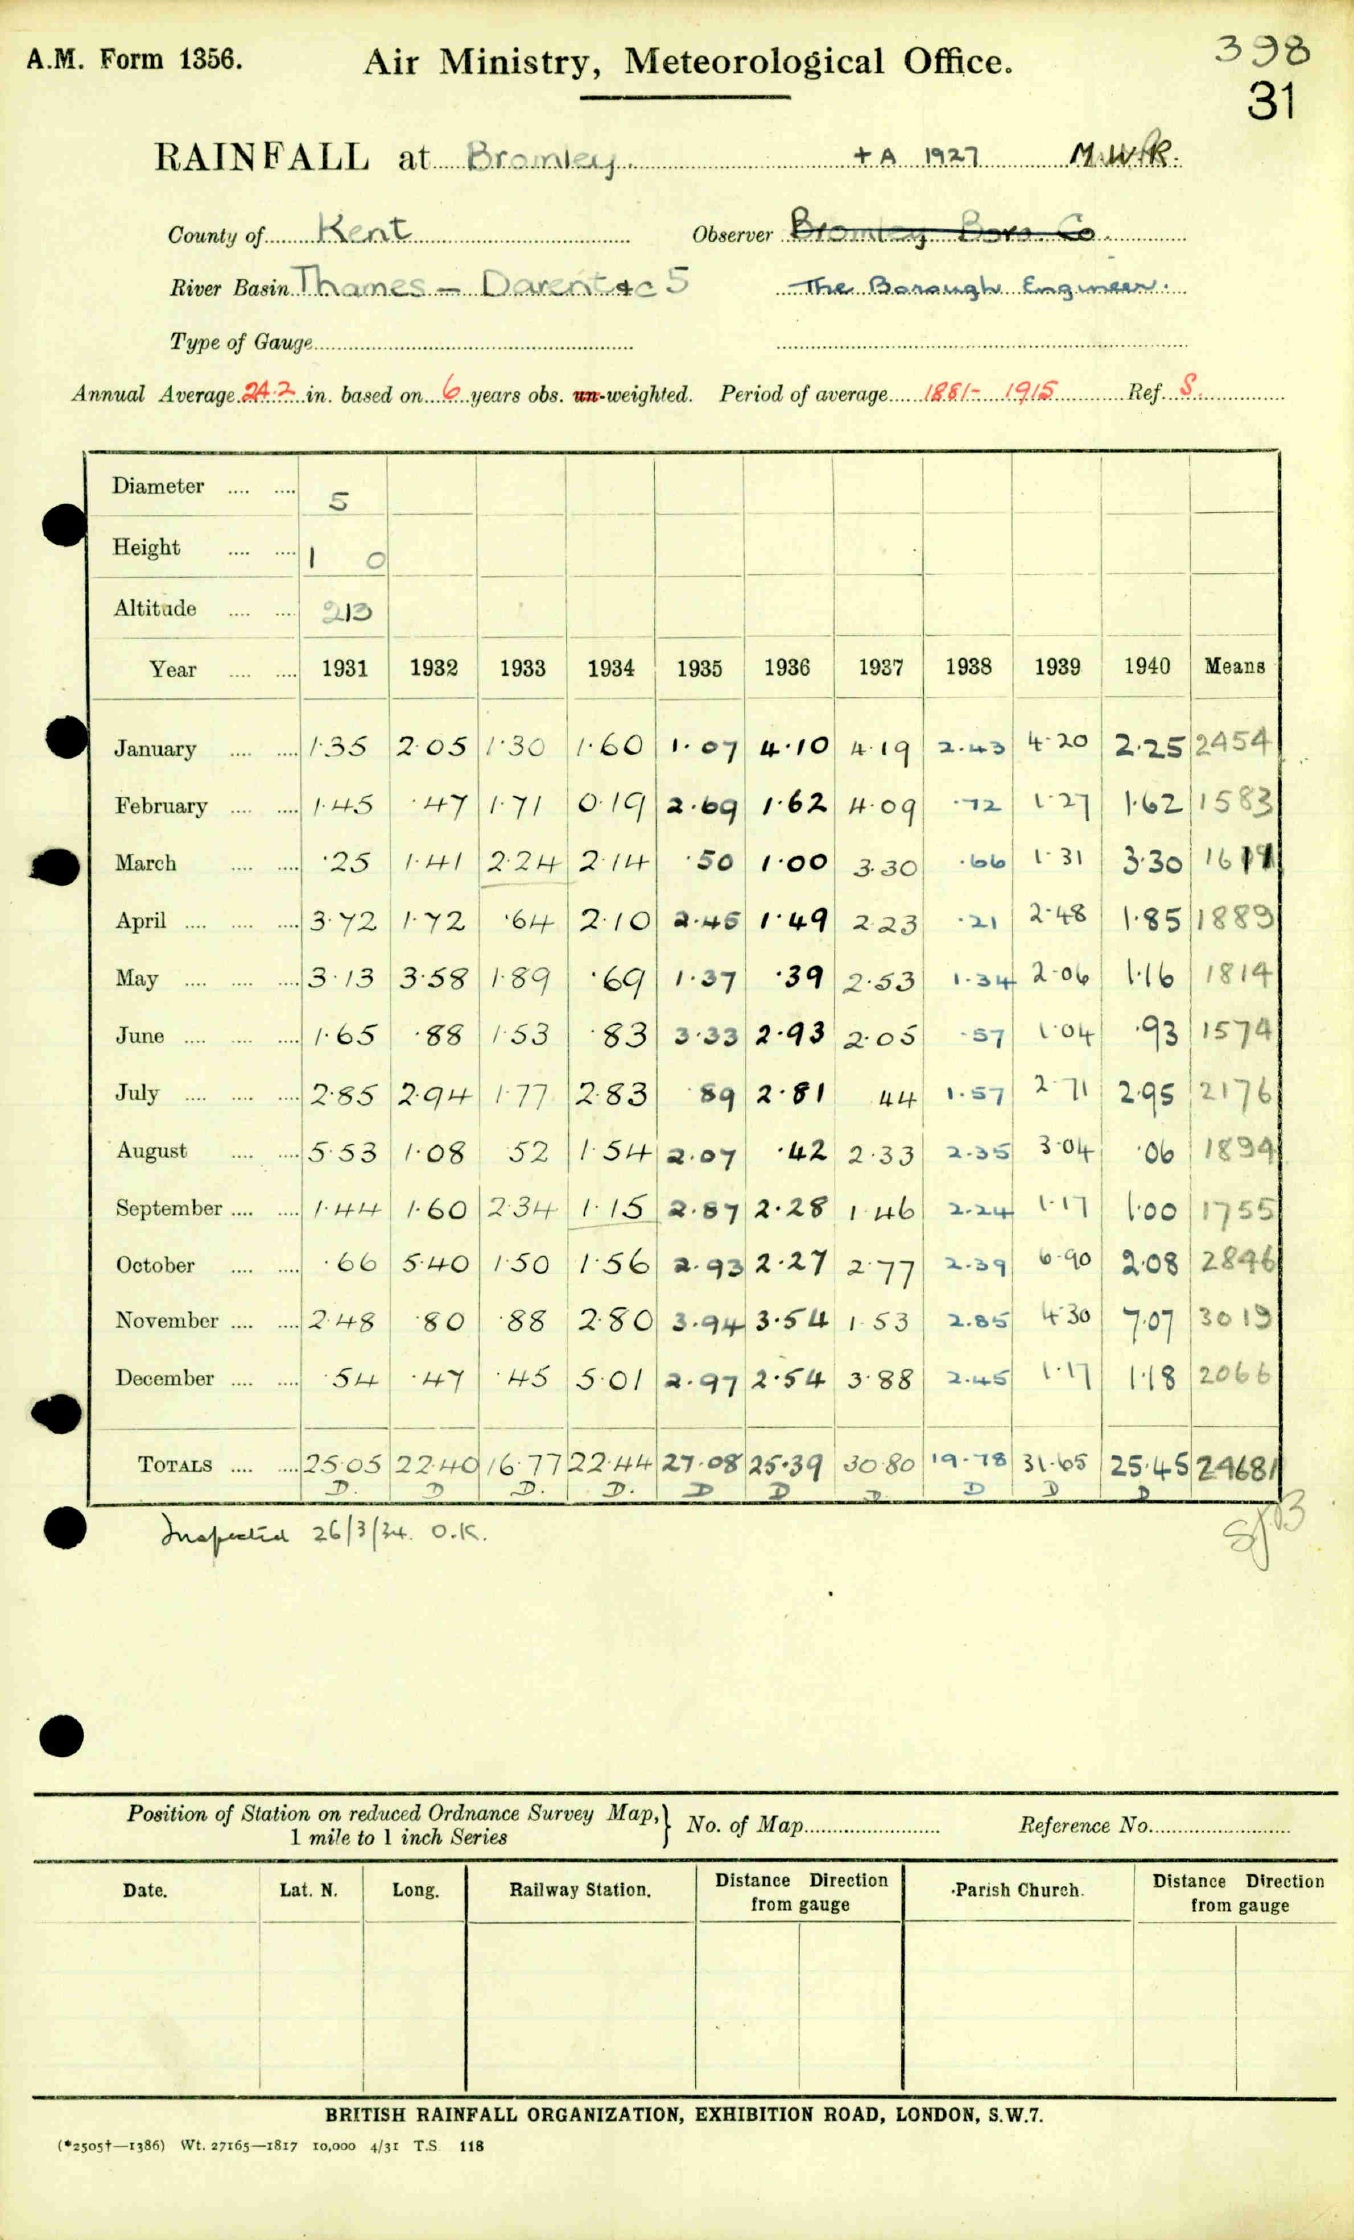 398
A.M. Form 1356. Air Ministry, Meteorological Office.
31
RAINFALL at Bromley. + A 1927 M.W.R.
County of Kent Observer Bromley Boro. Co.
River Basin Thames — Darent &c 5 The Borough Engineer.
Type of Gauge
Annual Average 24.2 in. based on 6 years obs. un-weighted. Period of average 1881- 1915 Ref. S.
Diameter 5
Height 1 0
Altitude 213
Year 1931 1932 1933 1934 1935 1936 1937 1938 1939 1940 Means
January 1.35 2.05 1.30 1.60 1.07 4.10 4.19 2.43 4.20 2.25 2454
February 1.45 .47 1.71 0.19 2.69 1.62 4.09 .72 1.27 1.62 1583
March .25 1.41 2.24 2.14 .50 1.00 3.30 .66 1.31 3.30
April 3.72 1.72 .64 2.10 2.45 1.49 2.23 .21 2.48 1.85 1889
May 3.13 3.58 1.89 .69 1.37 .39 2.53 1.34 2.06 1.16 1814
June 1.65 .88 1.53 .83 3.33 2.93 2.05 .57 1.04 .93 1574
July 2.85 2.94 1.77 2.83 89 2.81 44 1.57 2.71 2.95 2176
August 5.53 1.08 52 1.54 2.07 .42 2.33 2.35 3.04 .06 1894
September 1.44 1.60 2.34 1.15 2.87 2.28 1.46 2.24 1.17 1.00 1755
October .66 5.40 1.50 1.56 2.93 2.27 2.77 2.39 6.90 2.08 2846
November 2.48 .80 .88 2.80 3.94 3.54 1.53 2.85 4.30 7.07 3019
December .54 .47 .45 5.01 2.97 2.54 3.88 2.45 1.17 1.18 2066
TOTALS 25.05 22.40 16.77 22.44 27.08 25.39 30.80 19.78 31.65 25.45 24681
D. D D. D. D D D D D D
Inspected 26/3/34. O.K.
Position of Station on reduced Ordnance Survey Map, } No. of Map Reference No.
1 mile to 1 inch Series
Date. Lat. N. Long. Railway Station. Distance Direction from gauge Parish Church. Distance Direction from gauge
BRITISH RAINFALL ORGANIZATION, EXHIBITION ROAD, LONDON, S.W.7.
(*2505†—1386) Wt. 27165—1817 10,000 4/31 T.S. 118